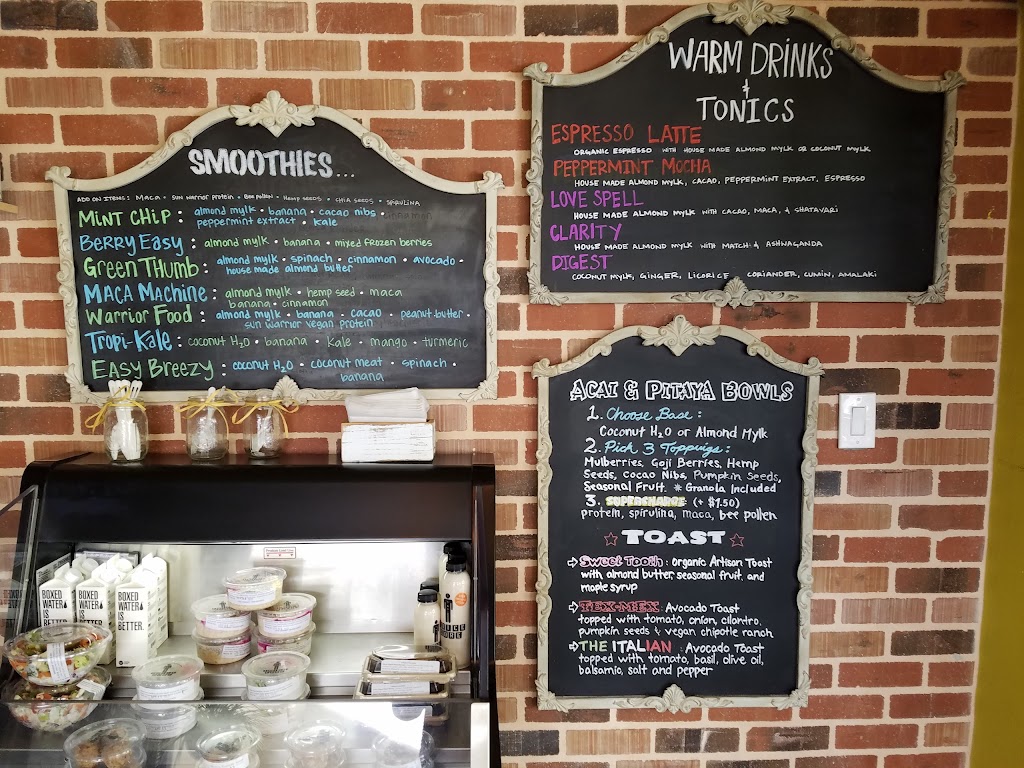 SMOOTHIES...
ADD ON ITEMS: MACA • SUN WARRIOR PROTEIN • BEE POLLEN • HEMP SEEDS • CHIA SEEDS • SPIRULINA
MINT CHIP: almond mylk • banana • cacao nibs • cinnamon
peppermint extract • Kale
BERRY EASY: almond mylk • banana • mixed frozen berries
GREEN THUMB: almond mylk • spinach • cinnamon • avocado •
house made almond butter
MACA MACHINE: almond mylk • hemp seed • maca
banana • cinnamon
WARRIOR FOOD: almond mylk • banana • cacao • peanut butter •
sun warrior vegan protein
TROPI-KALE: coconut H2O • banana • Kale • mango • turmeric
EASY BREEZY: coconut H2O • coconut meat • spinach •
banana
WARM DRINKS
+
TONICS
ESPRESSO LATTE
ORGANIC ESPRESSO WITH HOUSE MADE ALMOND MYLK OR COCONUT MYLK
PEPPERMINT MOCHA
HOUSE MADE ALMOND MYLK, CACAO, PEPPERMINT EXTRACT, ESPRESSO
LOVE SPELL
HOUSE MADE ALMOND MYLK WITH CACAO, MACA, & SHATAVARI
CLARITY
HOUSE MADE ALMOND MYLK WITH MATCHA & ASHWAGANDA
DIGEST
COCONUT MYLK, GINGER, LICORICE, CORIANDER, CUMIN, AMALAKI
ACAI & PITAYA BOWLS
1. Choose Base:
Coconut H2O or Almond Mylk
2. Pick 3 Toppings:
Mulberries, Goji Berries, Hemp
Seeds, Cacao Nibs, Pumpkin Seeds,
Seasonal Fruit. * Granola Included
3. SUPERCHARGE (+ $1.50)
protein, spirulina, maca, bee pollen
TOAST
Sweet Tooth: Organic Artisan Toast
with almond butter, seasonal fruit, and
maple syrup
TEX-MEX: Avocado Toast
topped with tomato, onion, cilantro,
pumpkin seeds & vegan chipotle ranch
THE ITALIAN: Avocado Toast
topped with tomato, basil, olive oil,
balsamic, salt and pepper
BOXED
WATER
IS
BETTER.
BOXED
WATER
IS
BETTER.
BOXED
WATER
IS
BETTER.